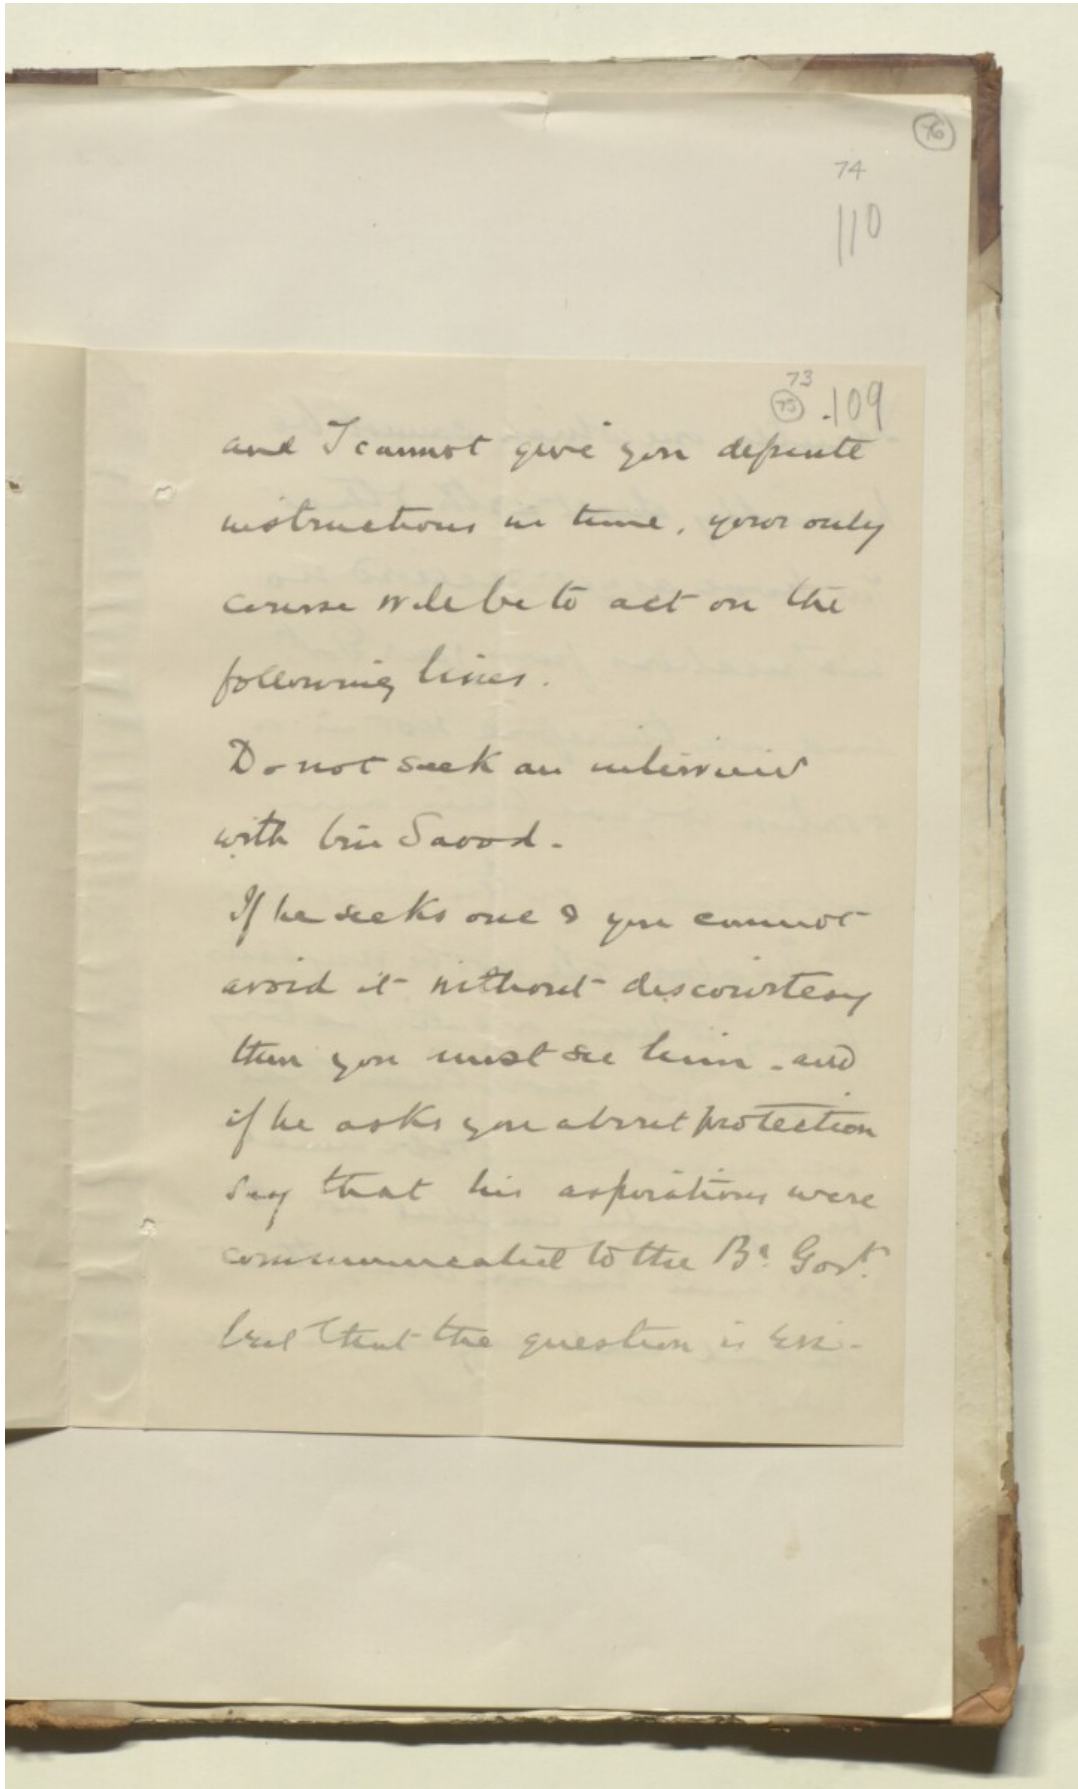 76
74
110
73
75 .109
and I cannot give you definite
instructions in time, your only
course will be to act on the
following lines.
Do not seek an interview
with bin Saood -
If he seeks one & you cannot
avoid it without discourtesy
then you must see him - and
if he asks you about protection
say that his aspirations were
communicated to the Bh. Govt.
but that the question is